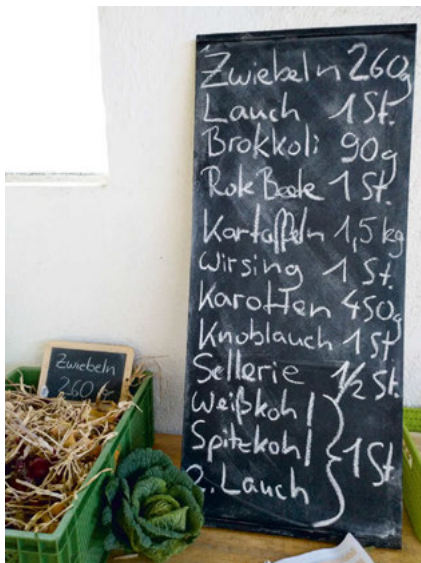 Zwiebeln 260g
Lauch 1 St.
Brokkoli 90g
Rote Beete 1 St.
Kartoffeln 1,5 kg
Wirsing 1 St.
Karotten 450g
Knoblauch 1 St
Sellerie 1/2 St.
Weißkohl
Spitzkohl 1 St.
o. Lauch
Zwiebeln
260 g